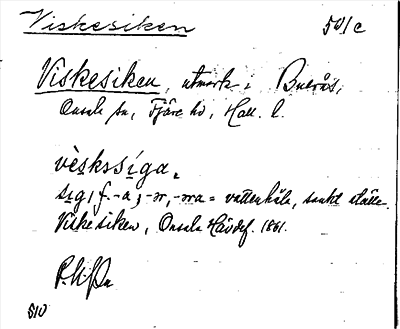 Viskesiken 50/c
Viskesiken, utmark i Buerås,
Onsala sn, Fjäre hd, Hall. l.
vèskssíga.
sig, f. -a, -ər, -əra = vattenhåla, sankt ställe.
Viskesiken, Onsala Hävdef. 1861.
S10